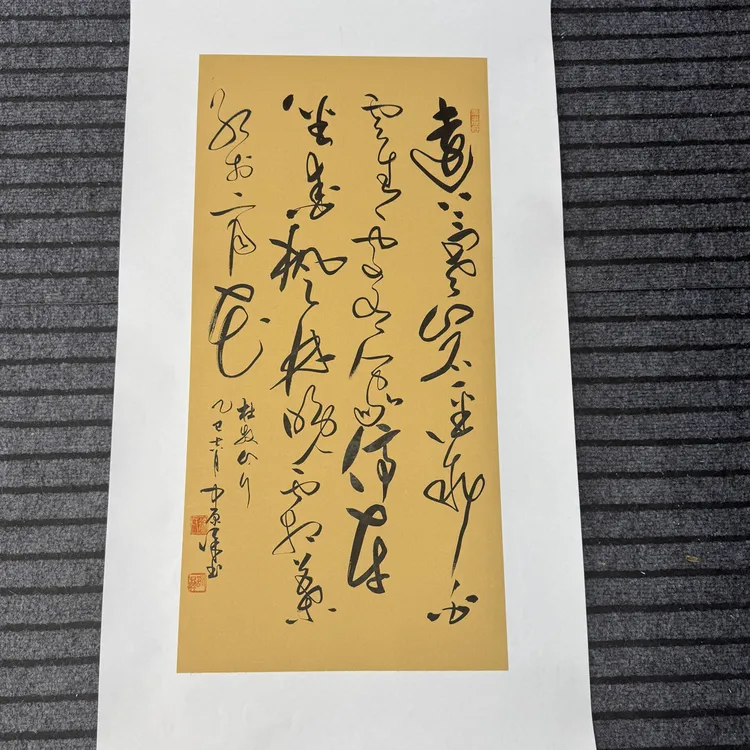 遠上寒山石徑斜白
雲生處有人家停車
坐愛楓林晚霜葉
紅於二月花
杜牧山行
乙巳六月中原